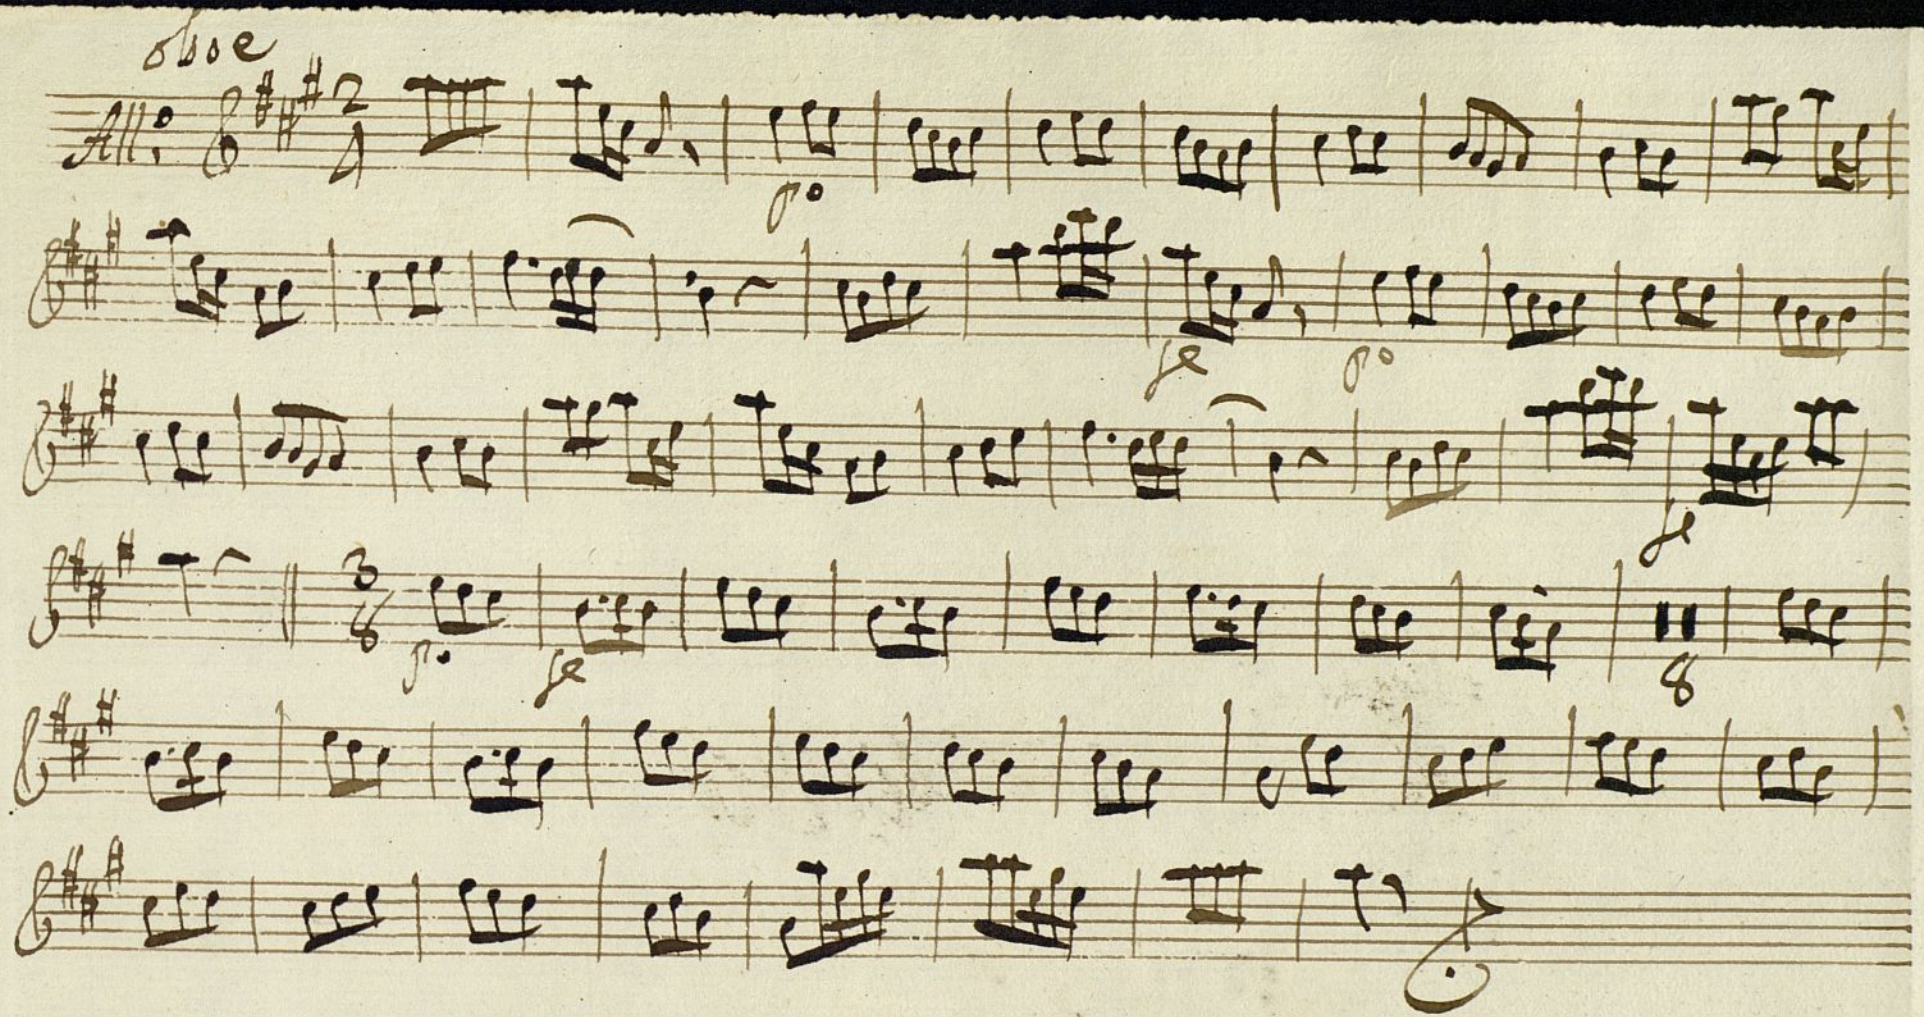 oboe
All:o 2 4
po
fe po
fe
3 8
po fe 8